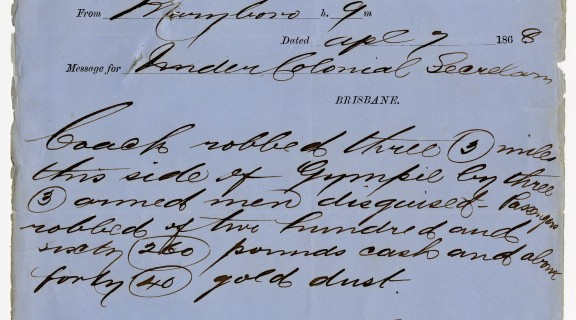 From Maryboro h. 9 m
Dated Apl 7 1868
Message for Under Colonial Secretary
BRISBANE.
Coach robbed three (3) miles
this side of Gympie by three
(3) armed men disguised - Passengers
robbed of two hundred and
sixty (260) pounds cash and above
forty (40) gold dust.